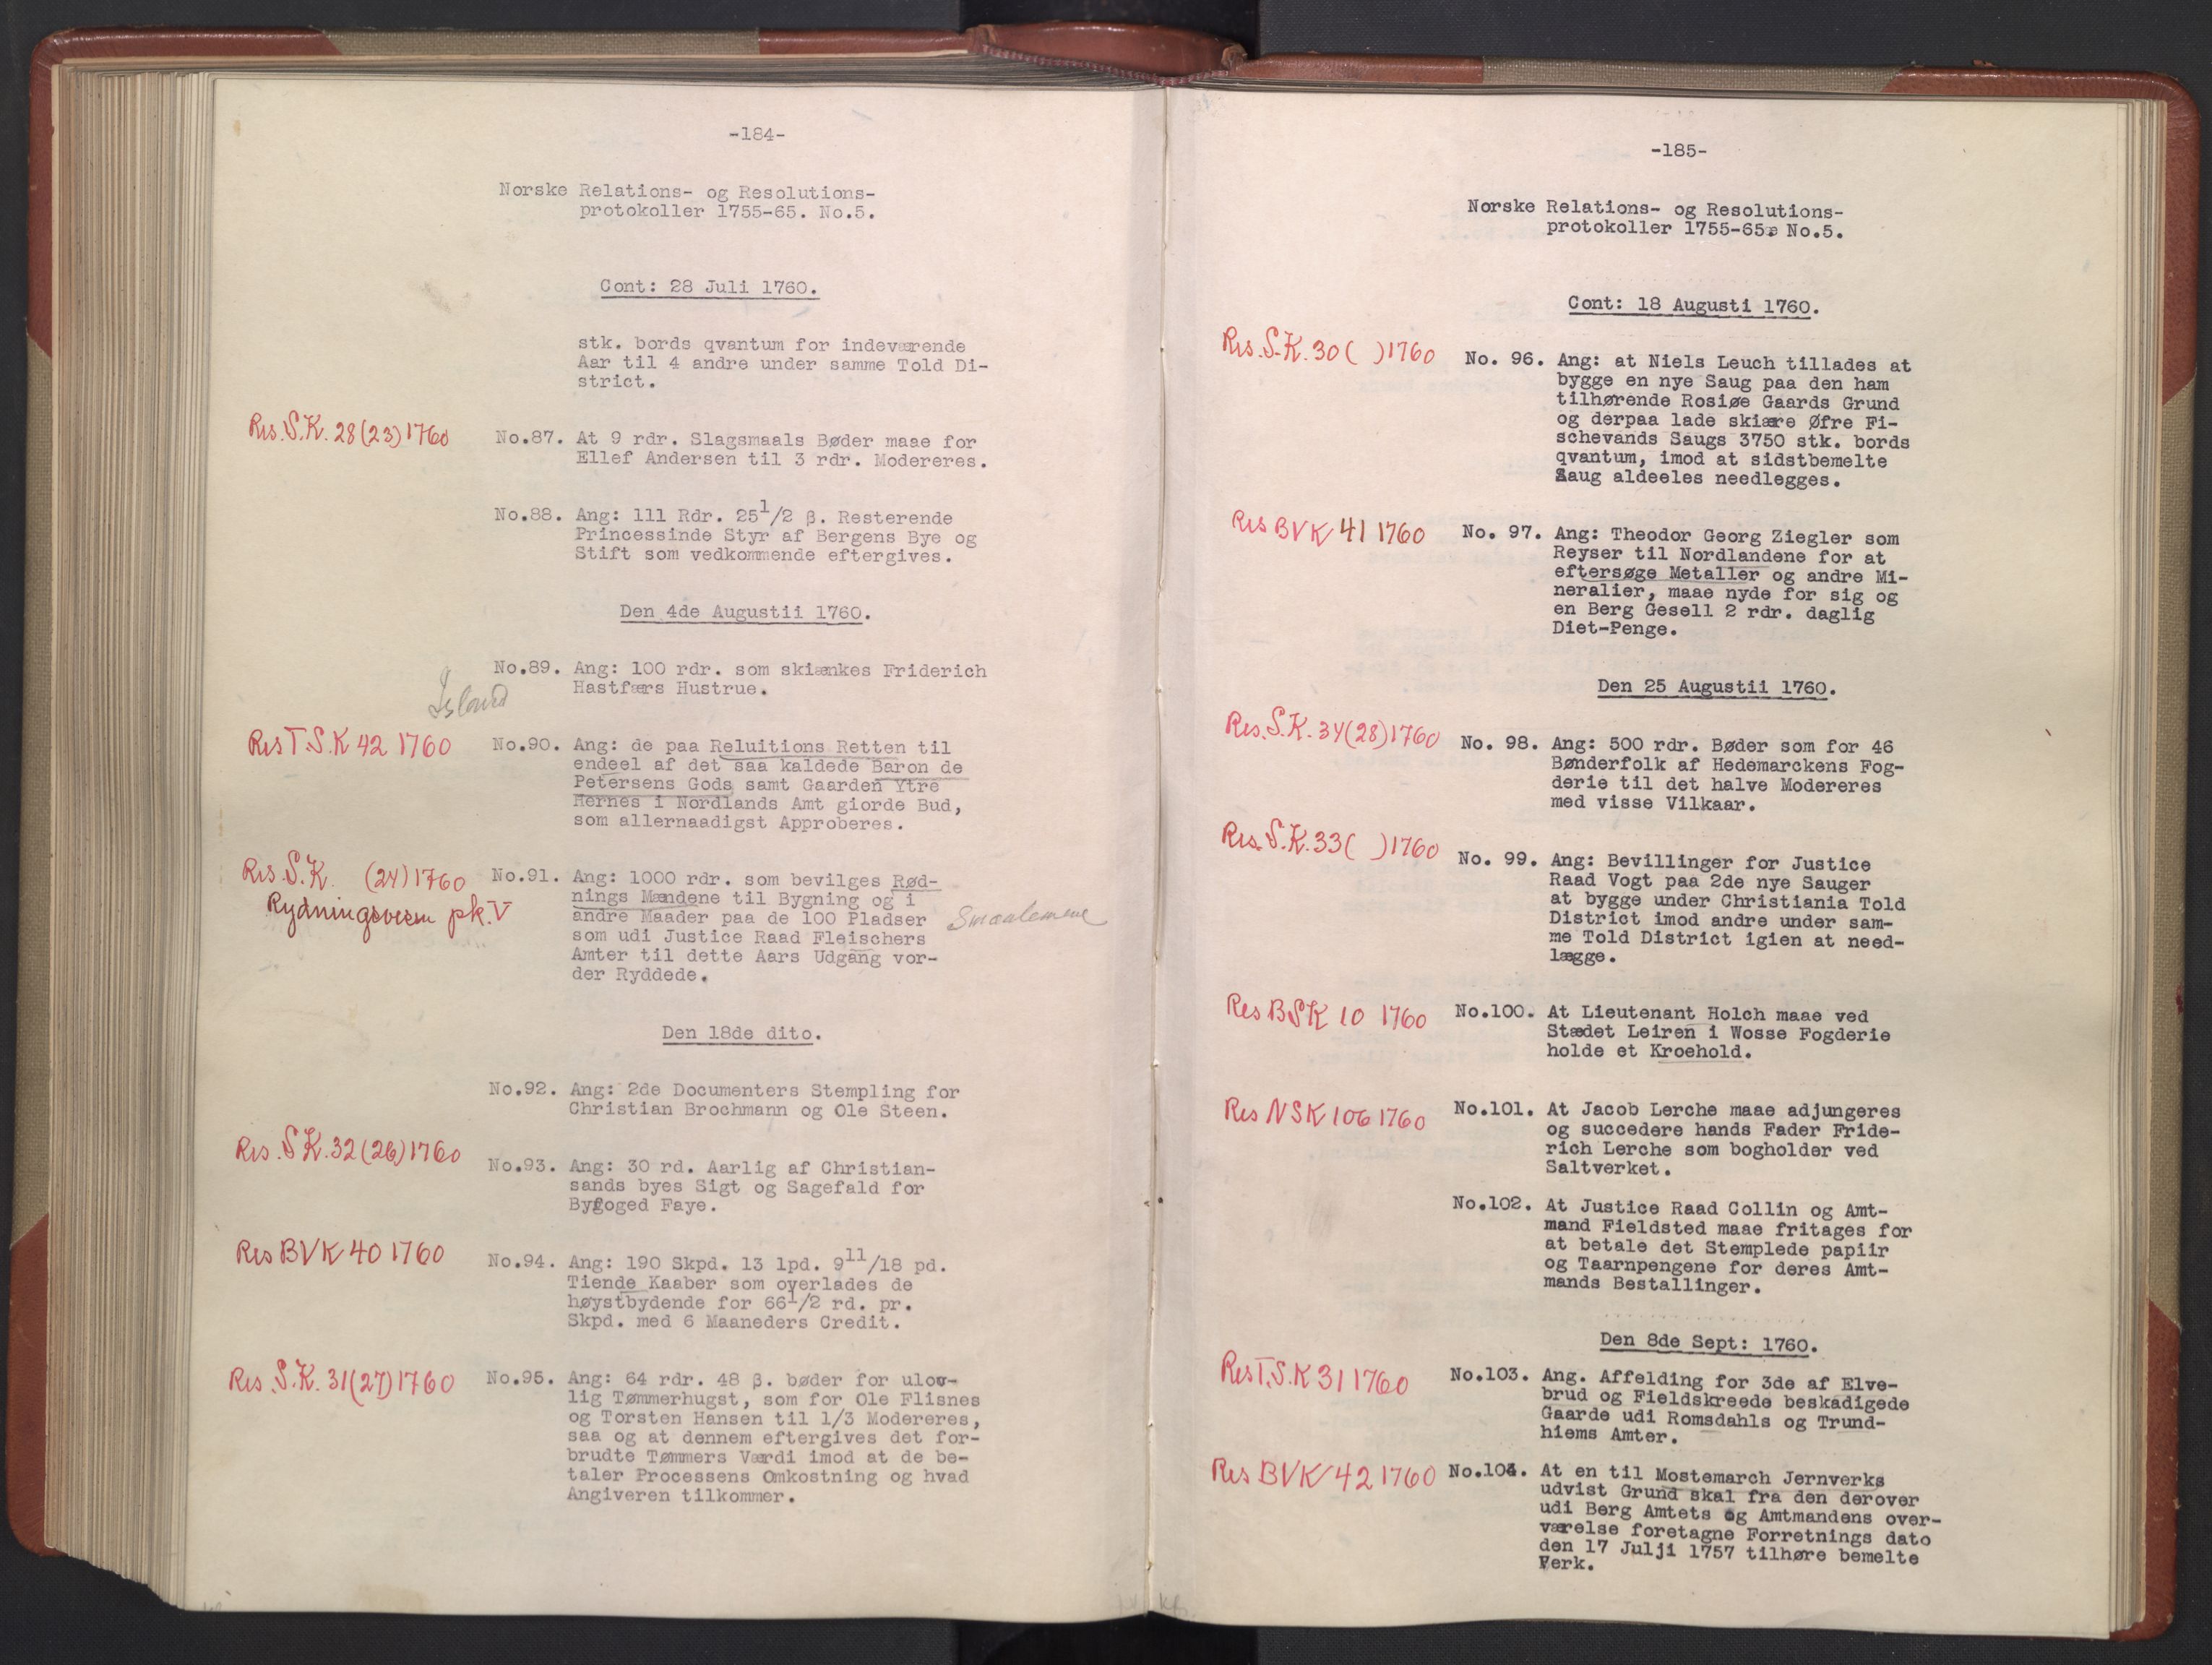 -184-
Norske Relations- og Resolutions-
protokoller 1755-65. No.5.
Cont: 28 Juli 1760.
stk. bords qvantum for indeværende
Aar til 4 andre under samme Told Di-
strict.
Res. S.K. 28(23)1760
No.87. At 9 rdr. Slagsmaals Bøder maae for
Ellef Andersen til 3 rdr. Modereres.
No.88. Ang: 111 Rdr. 25 1/2 β. Resterende
Princessinde Styr af Bergens Bye og
Stift som vedkommende eftergives.
Den 4de Augustii 1760.
No.89. Ang: 100 rdr. som skiænkes Friderich
Hastfærs Hustrue.
Island
Res T.S.K 42 1760
No.90. Ang: de paa Reluitions Retten til
endeel af det saa kaldede Baron de
Petersens Gods samt Gaarden Ytre
Hernes i Nordlands Amt giorde Bud,
som allernaadigst Approberes.
Res. S.K. (24)1760
Rydningsvesen pk. V
No.91. Ang: 1000 rdr. som bevilges Rød-
nings Mændene til Bygning og i
andre Maader paa de 100 Pladser
som udi Justice Raad Fleischers
Amter til dette Aars Udgang vor-
der Ryddede.
Smaalenene
Den 18de dito.
No.92. Ang: 2de Documenters Stempling for
Christian Brochmann og Ole Steen.
Res. S.K. 32(26)1760
No.93. Ang: 30 rd. Aarlig af Christian-
sands byes Sigt og Sagefald for
Byfoged Faye.
Res BVK 40 1760
No.94. Ang: 190 Skpd. 13 lpd. 9 11/18 pd.
Tiende Kaaber som overlades de
høystbydende for 66 1/2 rd. pr.
Skpd. med 6 Maaneders Credit.
Res. S.K. 31(27)1760
No.95. Ang: 64 rdr. 48 β. bøder for ulov-
lig Tømmerhugst, som for Ole Flisnes
og Torsten Hansen til 1/3 Modereres,
saa og at dennem eftergives det for-
brudte Tømmers Værdi imod at de be-
taler Processens Omkostning og hvad
Angiveren tilkommer.
-185-
Norske Relations- og Resolutions-
protokoller 1755-65. No.5.
Cont: 18 Augusti 1760.
Res. S.K. 30( )1760
No. 96. Ang: at Niels Leuch tillades at
bygge en nye Saug paa den ham
tilhørende Rosiøe Gaards Grund
og derpaa lade skiære Øfre Fi-
schevands Saugs 3750 stk. bords
qvantum, imod at sidstbemelte
Saug aldeeles needlegges.
Res BVK 41 1760
No. 97. Ang: Theodor Georg Ziegler som
Reyser til Nordlandene for at
eftersøge Metaller og andre Mi-
neralier, maae nyde for sig og
en Berg Gesell 2 rdr. daglig
Diet-Penge.
Den 25 Augustii 1760.
Res. S.K. 34(28)1760
No. 98. Ang: 500 rdr. Bøder som for 46
Bønderfolk af Hedemarckens Fog-
derie til det halve Modereres
med visse Vilkaar.
Res. S.K. 33( )1760
No. 99. Ang: Bevillinger for Justice
Raad Vogt paa 2de nye Sauger
at bygge under Christiania Told
District imod andre under sam-
me Told District igien at need-
lægge.
Res BSK 10 1760
No.100. At Lieutenant Holch maae ved
Stædet Leiren i Wosse Fogderie
holde et Kroehold.
Res NSK 106 1760
No.101. At Jacob Lerche maae adjungeres
og succedere hands Fader Fride-
rich Lerche som bogholder ved
Saltverket.
No.102. At Justice Raad Collin og Amt-
mand Fieldsted maae fritages for
at betale det Stemplede papiir
og Taarnpengene for deres Amt-
mands Bestallinger.
Den 8de Sept: 1760.
Res T.S.K 31 1760
No.103. Ang. Affelding for 3de af Elve-
brud og Fieldskreede beskadigede
Gaarde udi Romsdahls og Trund-
hiems Amter.
Res BVK 42 1760
No.104. At en til Mostemarch Jernverks
udvist Grund skal fra den derover
udi Berg Amtets og Amtmandens over-
værelse foretagne Forretnings dato
den 17 Julji 1757 tilhøre bemelte
Verk.